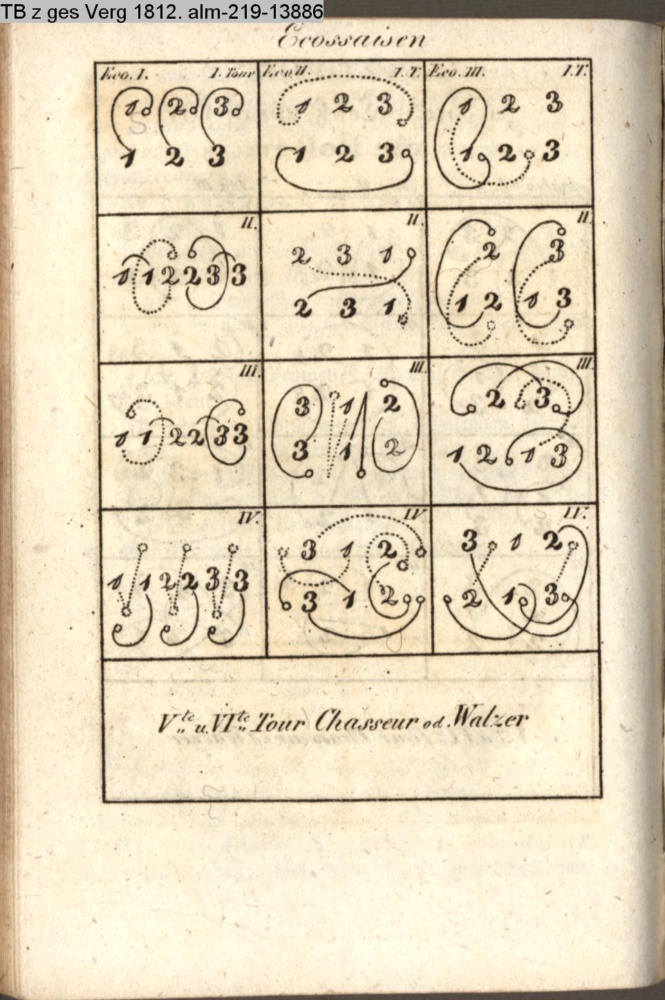 TB z ges Verg 1812. alm-219-13886
Ecossaisen
Eco. I. I. Tour Eco. II. I. T. Eco. III. I. T.
1 2 3 1 2 3 1 2 3
1 2 3 1 2 3 1 2 3
II. II. II.
2 3 1 2 3
1 1 2 2 3 3
2 3 1 1 2 1 3
III. III. III.
3 1 2 2 3
1 1 2 2 3 3
3 1 2 1 2 1 3
IV. IV IV.
3 1 2 3 1 2
1 1 2 2 3 3
3 1 2 2 1 3
V.te u. VI.te Tour Chasseur od. Walzer